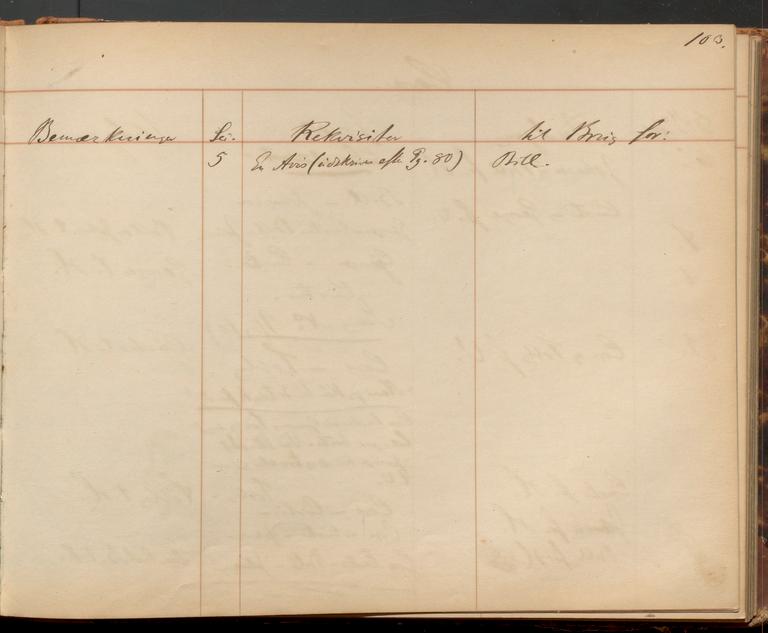 103.
Bemærkninger Sc. Rekvisiter til Brug for:
5 En Avis (udskrives efter Pg. 80) Bill.